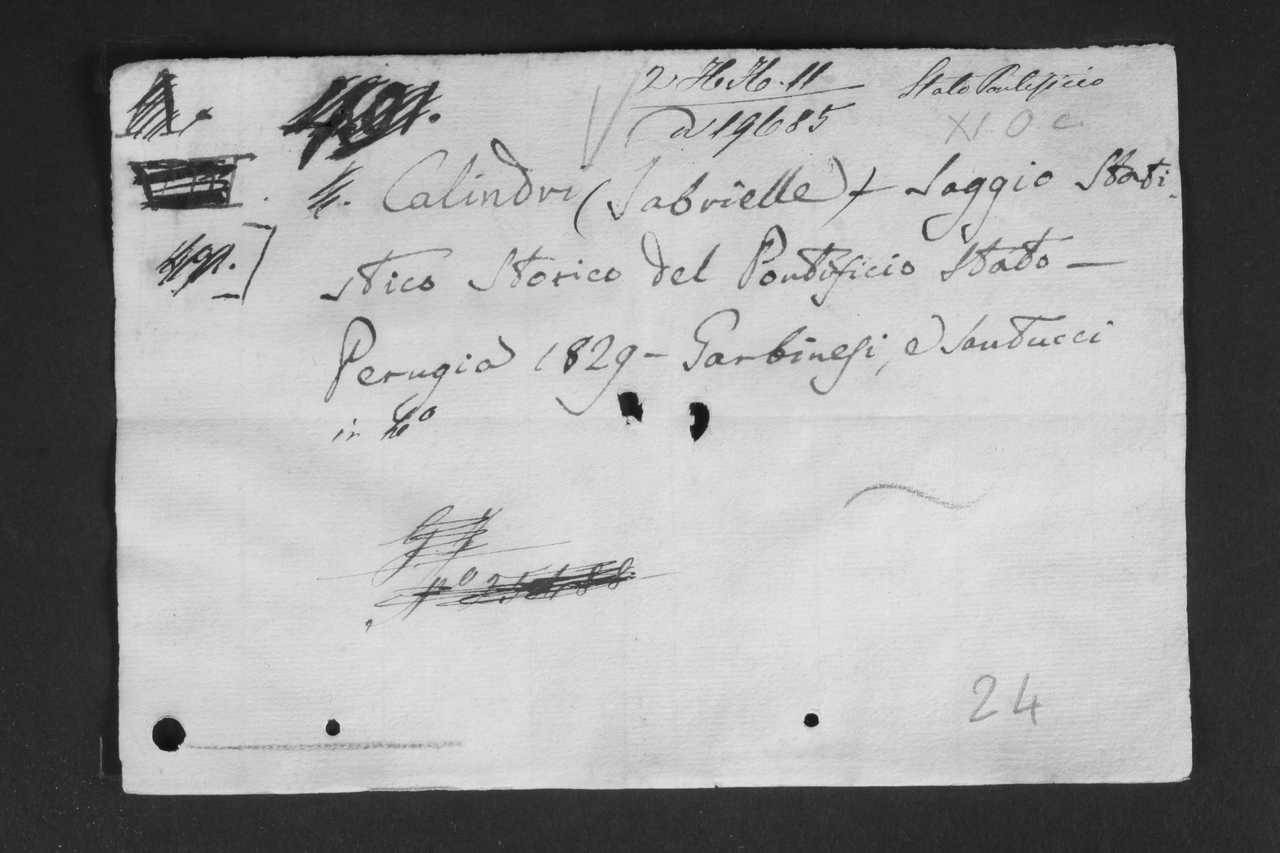 2 H.H. 11
a 19685
Stato Pontificio
XI O c
Calindri (Gabrielle) + Saggio Stati
stico Storico del Pontificio Stato —
Perugia 1829 — Garbinesi, e Santucci
in 4º
24